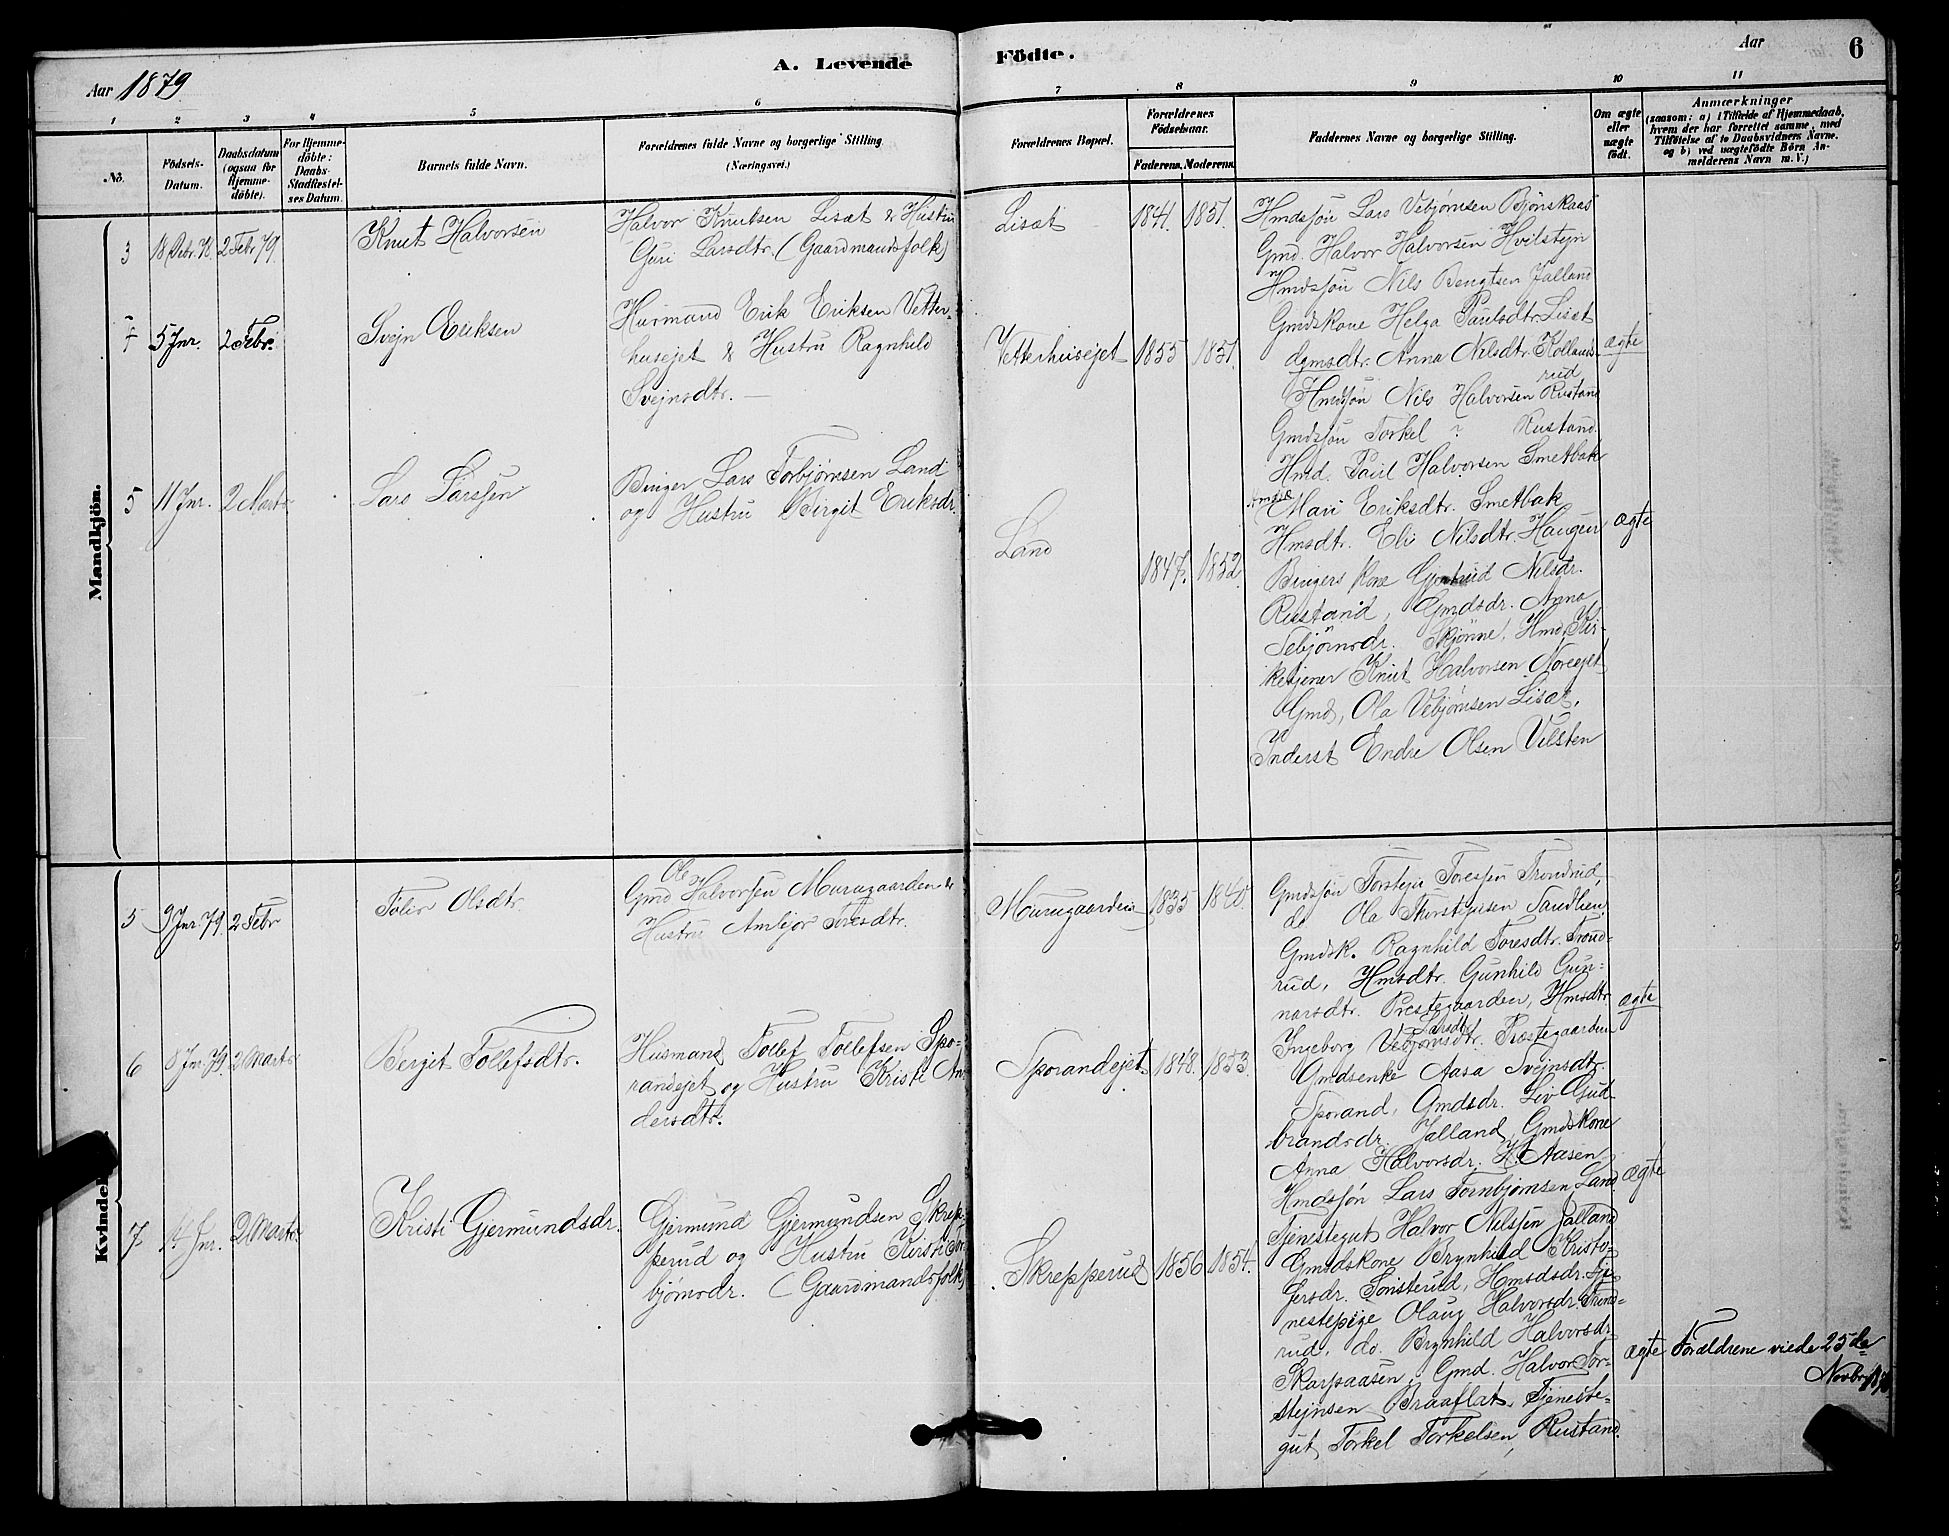 A. Levende Födte.
Aar 1879
Aar
6
1 2 3 4 5 6 7 8 9 10 11
No.
Födsels-Datum.
Daabsdatum (ogsaa for Hjemme-døbte).
For Hjemme-døbte: Daabs-Stadfæstel-ses Datum.
Barnets fulde Navn.
Forældrenes fulde Navne og borgerlige Stilling (Næringsvei.)
Forældrenes Bopæl.
Forældrenes Födselsaar.
Faderens. Moderens.
Faddernes Navne og borgerlige Stilling.
Om ægte eller uægte født.
Anmærkninger
(saasom: a) i Tilfælde af Hjemmedaab, hvem der har forrettet samme, med Tilføielse af to Daabsvidners Navne, og b) ved uægtefødte Börn An-melderens Navn m. V.)
Mandkjön.
3 18 Debr. 78. 2 Febr 79.
Knut Halvorsen
Halvor Knutsen Lisæt & Hustru
Guri Larsdtr. (Gaardmandsfolk)
Lisæt 1841. 1851.
Hmdssøn Lars Vebjørnsen Bjønskaas
Gmd. Halvor Halvorsen Hvilstejn
Hmdssøn Nils Bengtsen Jalland
Gmdskone Helga Paulsdtr. Lisæt
Gmsdtr. Anna Nilsdtr. Kollands-
rud
4 5 Jnr. 2 Febr.
Svejn Eriksen
Husmand Erik Eriksen Vetter-
husejet & Hustru Ragnhild
Svejnsdtr. —
Vetterhusejet 1855 1851.
ægte
Hmdssøn Nils Halvorsen Rustand
Gmdssøn Torkel ? Rustand.
Hmd. Paul Halvorsen Smetbak
Mari Eriksdtr. Smetbak
Hmsdtr. Eli Nilsdtr. Haugen
5 11 Jnr. 2 Marts
Lars Larssen
Bruger Lars Torbjørnsen Land
og Hustru Birgit Eriksdr.
Land
1847. 1852
ægte
Brugers Kone Gjertrud Nilsdr.
Rustand, Gmdsdr. Anna
Tebjørnsdr. Skjønne, Hmd, Kir-
ketjener Knut Halvorsen Noreejet
Gmd, Ola Vebjørnsen Lisæt,
Inderst Endre Olsen Vilsten
Kvindek
5 9 Jnr. 79. 2 Febr
Olsdtr.
Ole
Gmd Halvorsen Muruga​arden &
Hustru Amlejor Toresdtr.
Murugaarden 1835 1840.
Gmdssøn Torstejn Toressen Trondrud,
do Ola Thorstejnsen Sandlien,
Gmdsk. Ragnhild Toresdtr. Trond-
rud, Hmsdtr. Gunhild Gun-
narsdtr. Prestegaarden, Hmsdtr
Larsdtr
Ingeborg Vebjørnsdtr. Præstegaarden
ægte
6 8 Jnr. 79. 2 Marts
Bergit Tollefsdtr.
Husmand Tollef Tollefsen Spo-
randejet og Hustru Kristi An
dersdtr.
Sporandejet 1848. 1853.
Gmdsenke Aasa Svejnsdtr.
Sporand, Gmdsdr. Liv Gud
brandsdr. Jalland, Gmdskone
Anna Halvorsdr. Aasen
Hmdssøn Lars Tornbjørnsen Land
Tjenestegut Halvor Nilssen Jalland
ægte
7 14 Jnr. 2 Marts
Kristi Gjermundsdr.
Gjermund Gjermundsen Skrep-
perud og Hustru Kirsti Tor
bjørnsdr. (Gaardmandsfolk)
Skrepperud 1856 1854.
Gmdskone Brynhild Kristo-
fersdr. Tonsterud, Hmdsdr. Tje-
nestepige Olaug Halvorsdr. Trond-
rud, do. Brynhild Halvorsdr
Skarpaasen, Gmd. Halvor Tor-
stejnsen Braaflat, Tjeneste-
gut Torkel Torkelsen Rustand.
ægte Forældrene viede 25de
Novbr 78